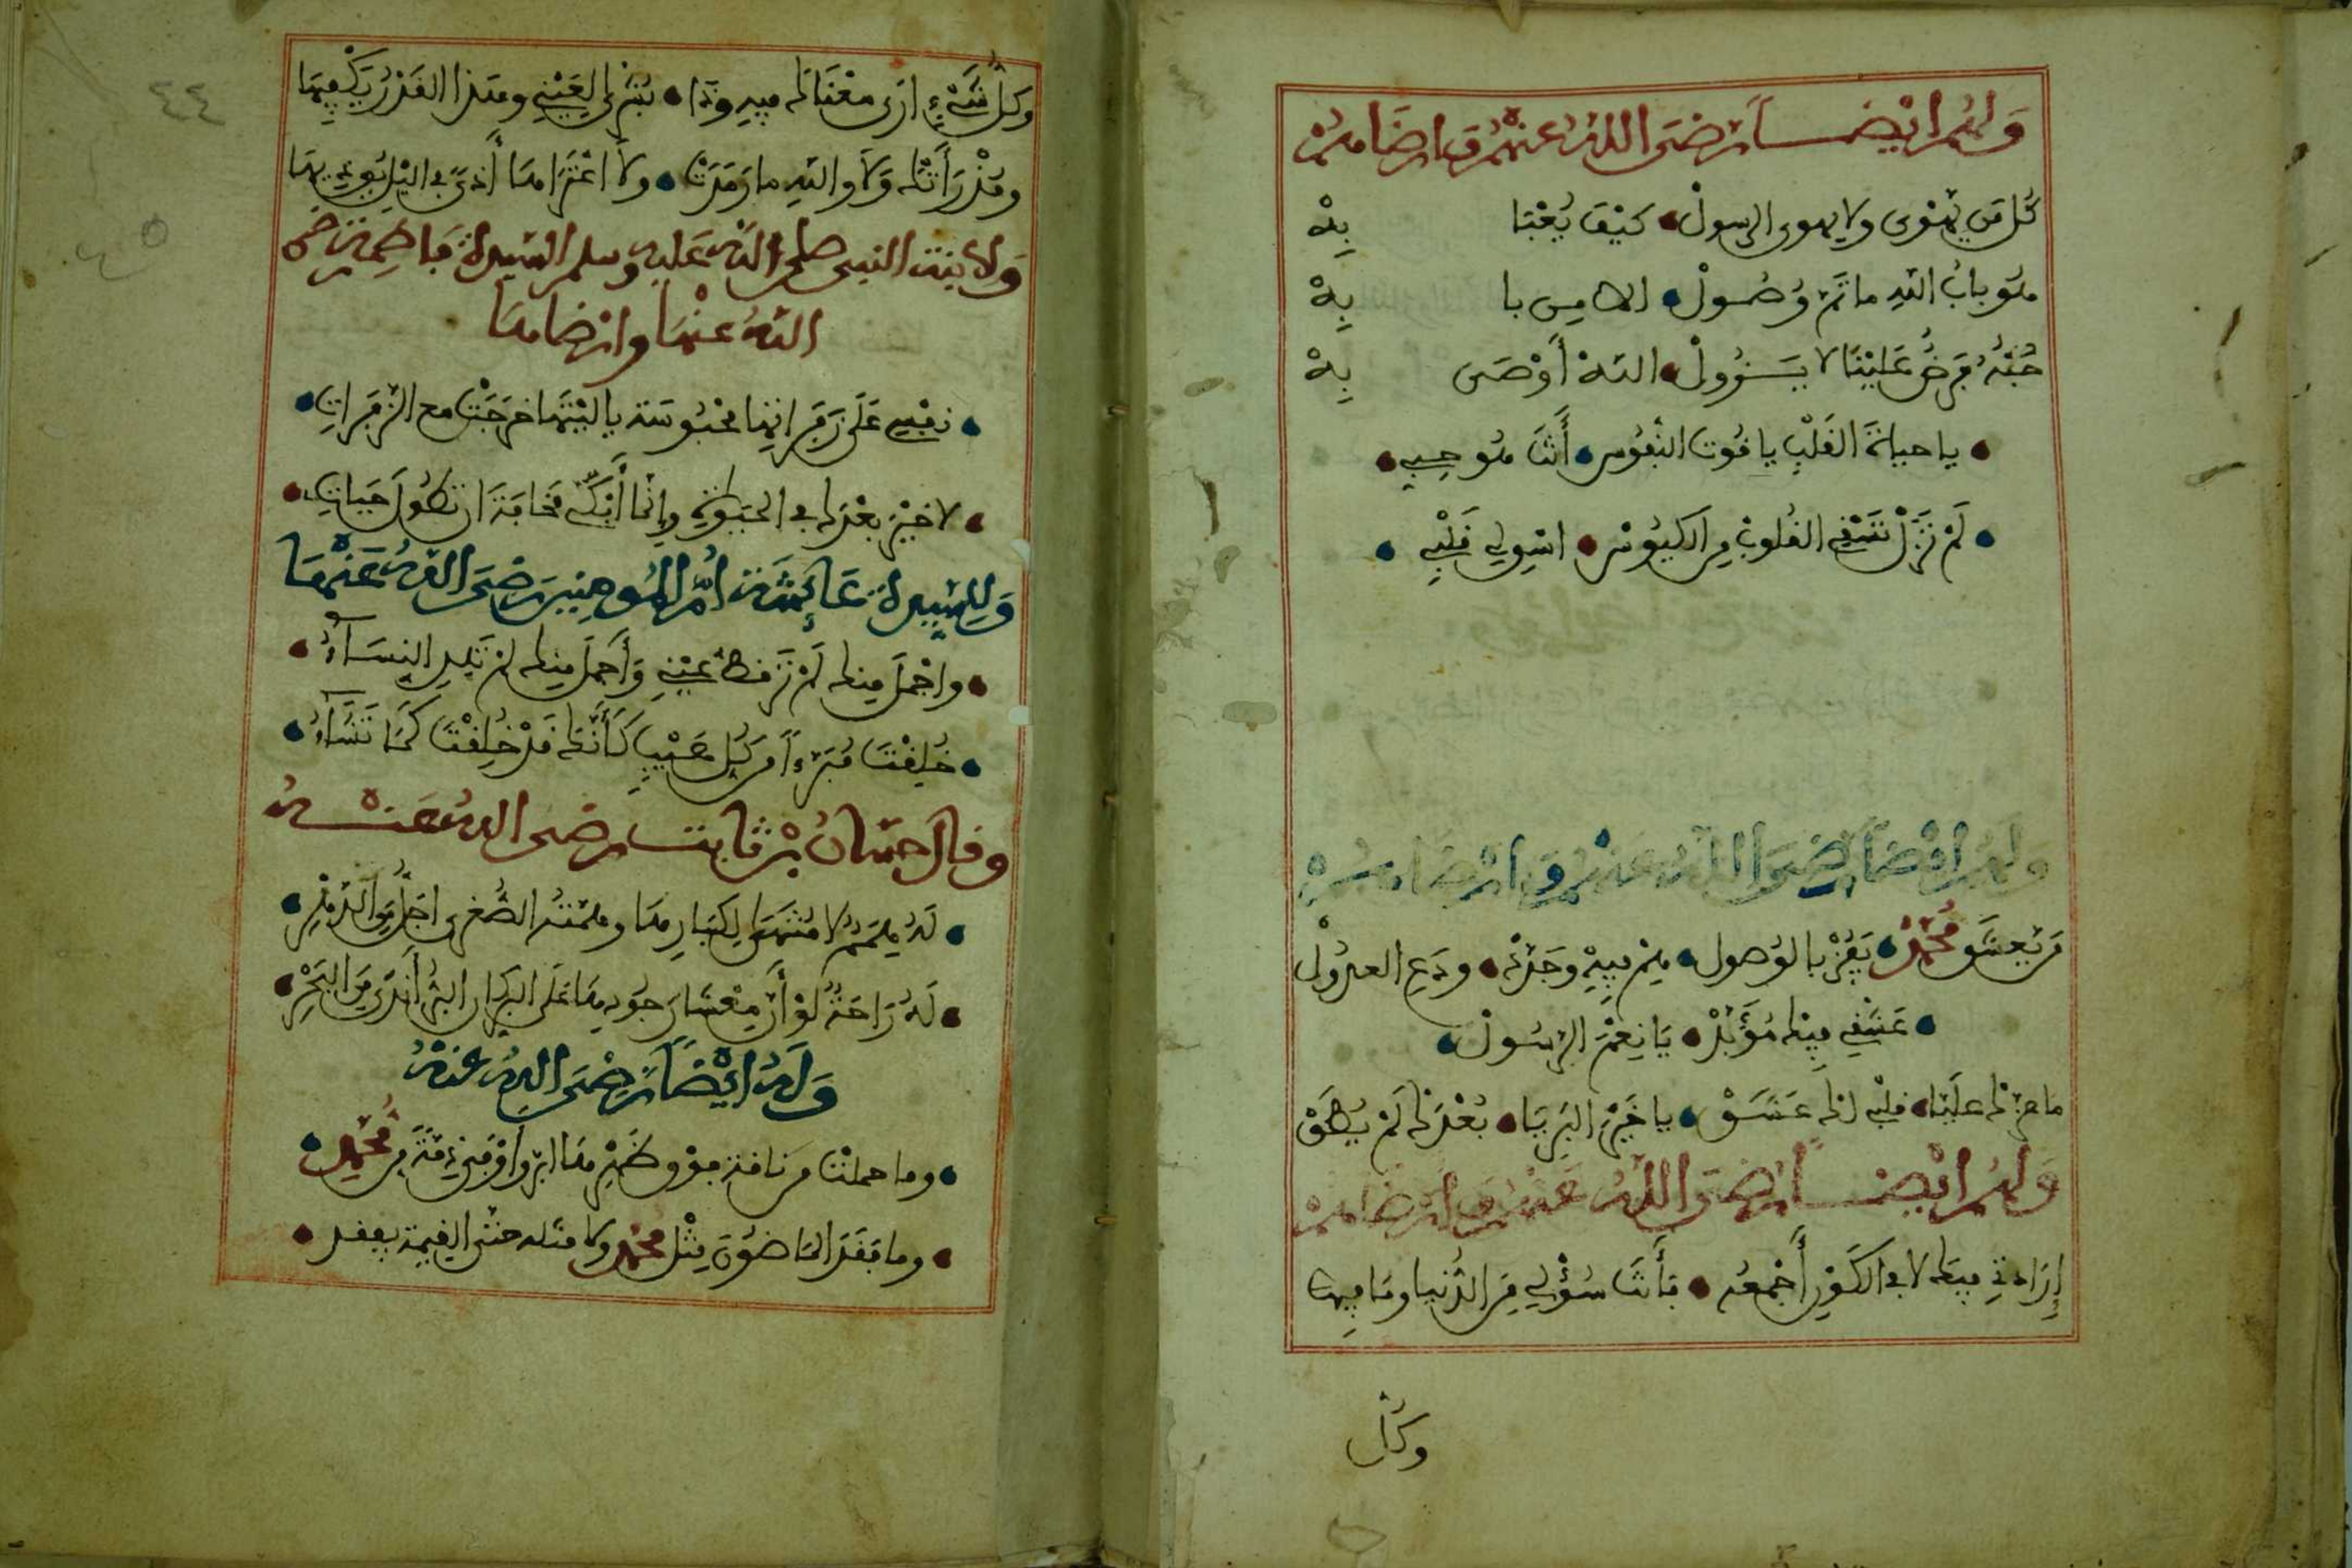 ولهم ايضا رضى الله عنهم وارضاهم
كل من يهوى ولا يهوى الرسول كيف يعبا به
هو باب الله ماتم وصول الا من با به
حبه فرض علينا لا يزول الله أوصى به
يا حياة القلب يا قوت النفوس أنت هو حبي
لم تزل تسقي القلوب من الكيوس اسولي قلبي
وله ايضا رضى الله عنه وارضاه
من يعشق محمد يفز بالوصول هم فيه وجده ودع العدول
عشقي فيك مؤبد يا نعم الرسول
ما عزك عليا قلبي لك عشق يا خير البريا بعدك لم يطق
ولهم ايضا رضى الله عنهم وارضاهم
إرادتي فيك لا في الكون أجمعه فأنت سؤلي من الدنيا وما فيها
وكل
٤٤
وكل شيء ارى معناك فيه وذا تنزل لعيني وهذا القدر يكفيها
وقد رأتك ولا والله ما رمدت ولا اعتراها أذى في اليل يوذيها
ولابنت النبي صلى الله عليه وسلم السيدة فاطمة رضي
الله عنها وارضاها
نفسي على زفراتها محبوسة ياليتها خرجت مع الزفرات
لا خير بعدك في الحيوة وإنما أبكي مخافة ان تطول حياتي
وللسيدة عائشة أم المومنين رضى الله عنها
واجمل منك لم تر قط عيني وأجمل منك لم تلد النساء
خلقت مبرءا من كل عيب كأنك قد خلقت كما تشاء
وقال حسان بن ثابت رضى الله عنه
له همم لا منتهى لكبارها وهمته الصغرى اجل من الدهر
له راحة لو أن معشار جودها على البر كان البر أندى من البحر
وله ايضا رضى الله عنه
وما حملت من ناقة فوق ظهرها ابر واوفى ذمة من محمد
وما فقد الماضون مثل محمد ولا مثله حتى القيمة يفقد